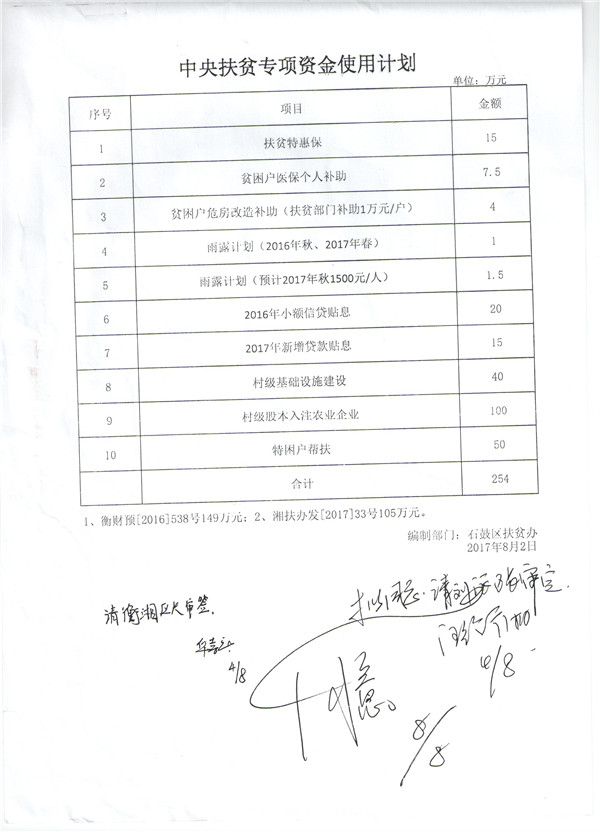 中央扶贫专项资金使用计划
单位：万元
序号 项目 金额
1 扶贫特惠保 15
2 贫困户医保个人补助 7.5
3 贫困户危房改造补助（扶贫部门补助1万元/户） 4
4 雨露计划（2016年秋、2017年春） 1
5 雨露计划（预计2017年秋1500元/人） 1.5
6 2016年小额信贷贴息 20
7 2017年新增贷款贴息 15
8 村级基础设施建设 40
9 村级股本入注农业企业 100
10 特困户帮扶 50
合计 254
1、衡财预[2016]538号149万元；2、湘扶办发[2017]33号105万元。
编制部门：石鼓区扶贫办
2017年8月2日
请衡湘区长审签.
4/8
拟同意.请
审定.
4/8
同意
8/8